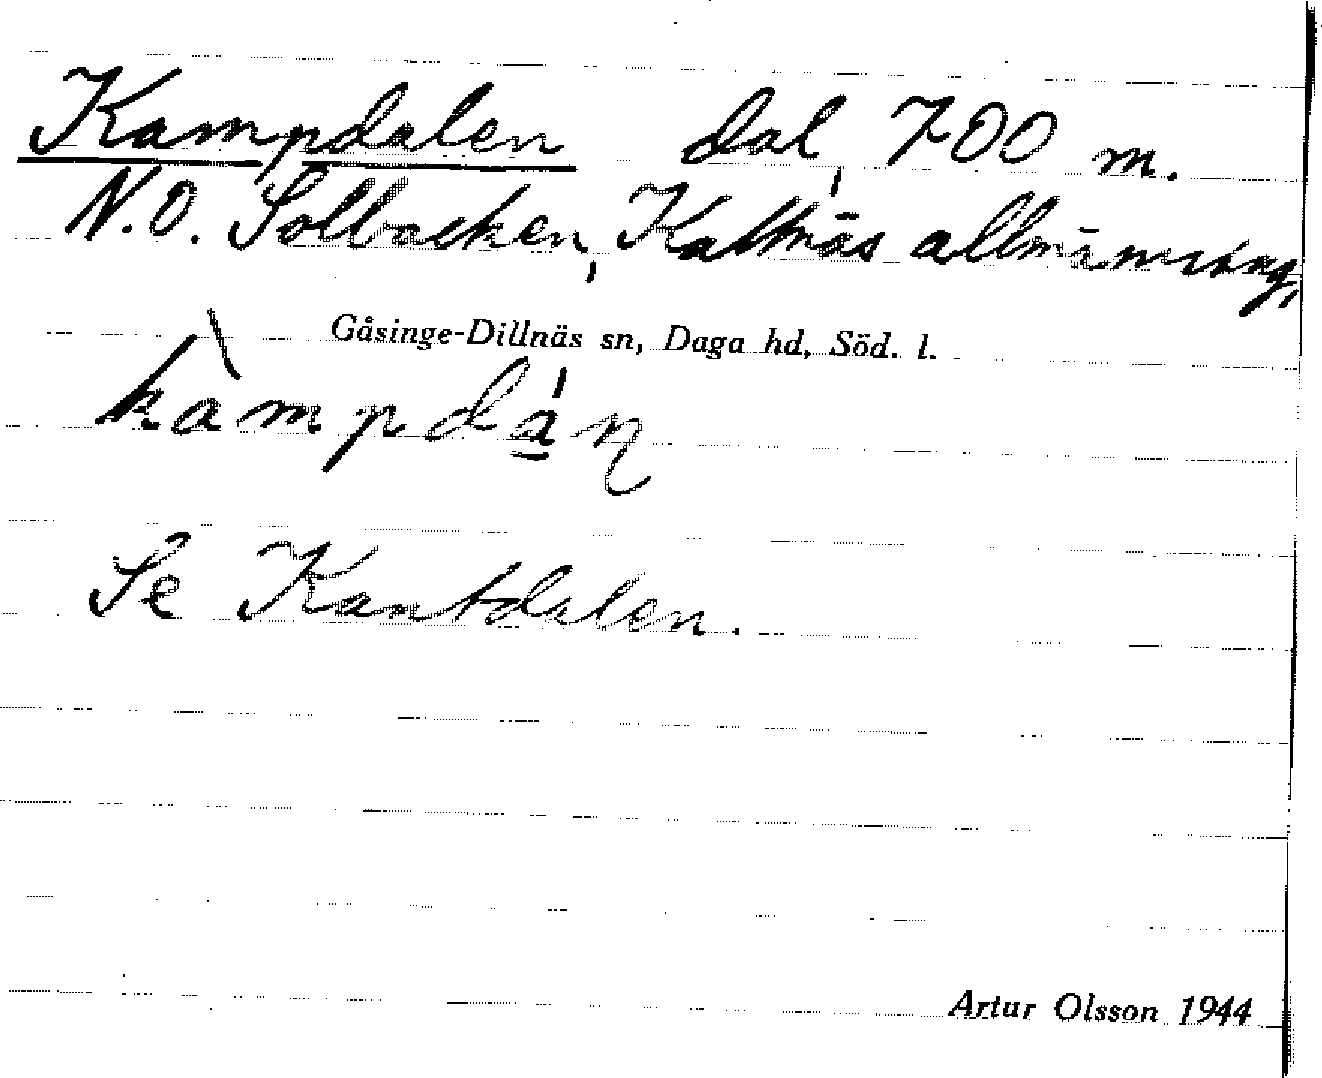 Kampdalen dal, 700 m.
N.O. Solbacken, Kattnäs allmänning,
Gåsinge-Dillnäs sn, Daga hd, Söd. l.
Se Kantdalen.
Artur Olsson 1944